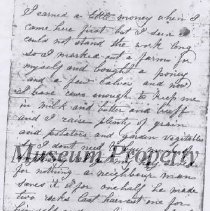 I earned a little money when I
came here first but I soon
could not stand the work long
so I marked out a farm for
myself and bought a poney
and a few calves and now
I have cows enough to keep me
in milk and butter and beef
and I raise plenty of grain
and potatoes and garden vegitables
I dont need
Museum Property
for nothing a neighbour man
saved it for one half he made
two racks last harvest one for